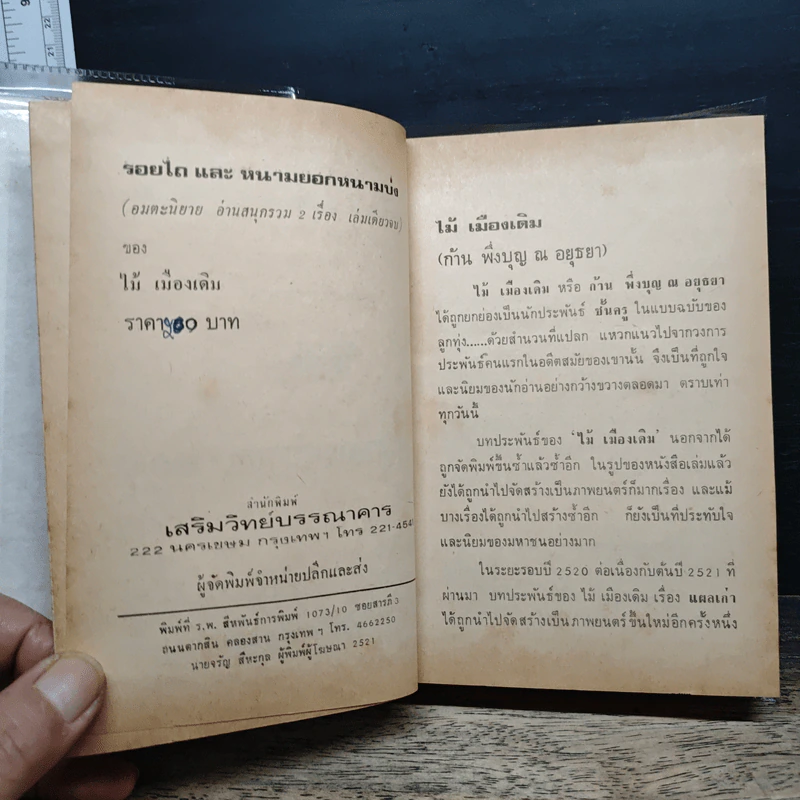 รอยไถ และ หนามยอกหนามบ่ง
(อมตะนิยาย อ่านสนุกรวม 2 เรื่อง เล่มเดียวจบ)
ของ
ไม้ เมืองเดิม
ราคา 0 บาท
สำนักพิมพ์
เสริมวิทย์บรรณาคาร
222 นครเขษม กรุงเทพฯ โทร 221-454
ผู้จัดพิมพ์จำหน่ายปลีกและส่ง
พิมพ์ที่ ร.พ. สีหพันธ์การพิมพ์ 1073/10 ซอยสารภี 3
ถนนตากสิน คลองสาน กรุงเทพฯ โทร. 4662250
นายจรัญ สีหะกุล ผู้พิมพ์ผู้โฆษณา 2521
ไม้ เมืองเดิม
(ก้าน พึ่งบุญ ณ อยุธยา)
ไม้ เมืองเดิม หรือ ก้าน พึ่งบุญ ณ อยุธยา
ได้ถูกยกย่องเป็นนักประพันธ์ ชั้นครู ในแบบฉบับของ
ลูกทุ่ง......ด้วยสำนวนที่แปลก แหวกแนวไปจากวงการ
ประพันธ์คนแรกในอดีตสมัยของเขานั้น จึงเป็นที่ถูกใจ
และนิยมของนักอ่านอย่างกว้างขวางตลอดมา ตราบเท่า
ทุกวันนี้
บทประพันธ์ของ 'ไม้ เมืองเดิม' นอกจากได้
ถูกจัดพิมพ์ขึ้นซ้ำแล้วซ้ำอีก ในรูปของหนังสือเล่มแล้ว
ยังได้ถูกนำไปจัดสร้างเป็นภาพยนตร์ก็มากเรื่อง และแม้
บางเรื่องได้ถูกนำไปสร้างซ้ำอีก ก็ยังเป็นที่ประทับใจ
และนิยมของมหาชนอย่างมาก
ในระยะรอบปี 2520 ต่อเนื่องกับต้นปี 2521 ที่
ผ่านมา บทประพันธ์ของ ไม้ เมืองเดิม เรื่อง แผลเก่า
ได้ถูกนำไปจัดสร้างเป็นภาพยนตร์ ขึ้นใหม่อีกครั้งหนึ่ง